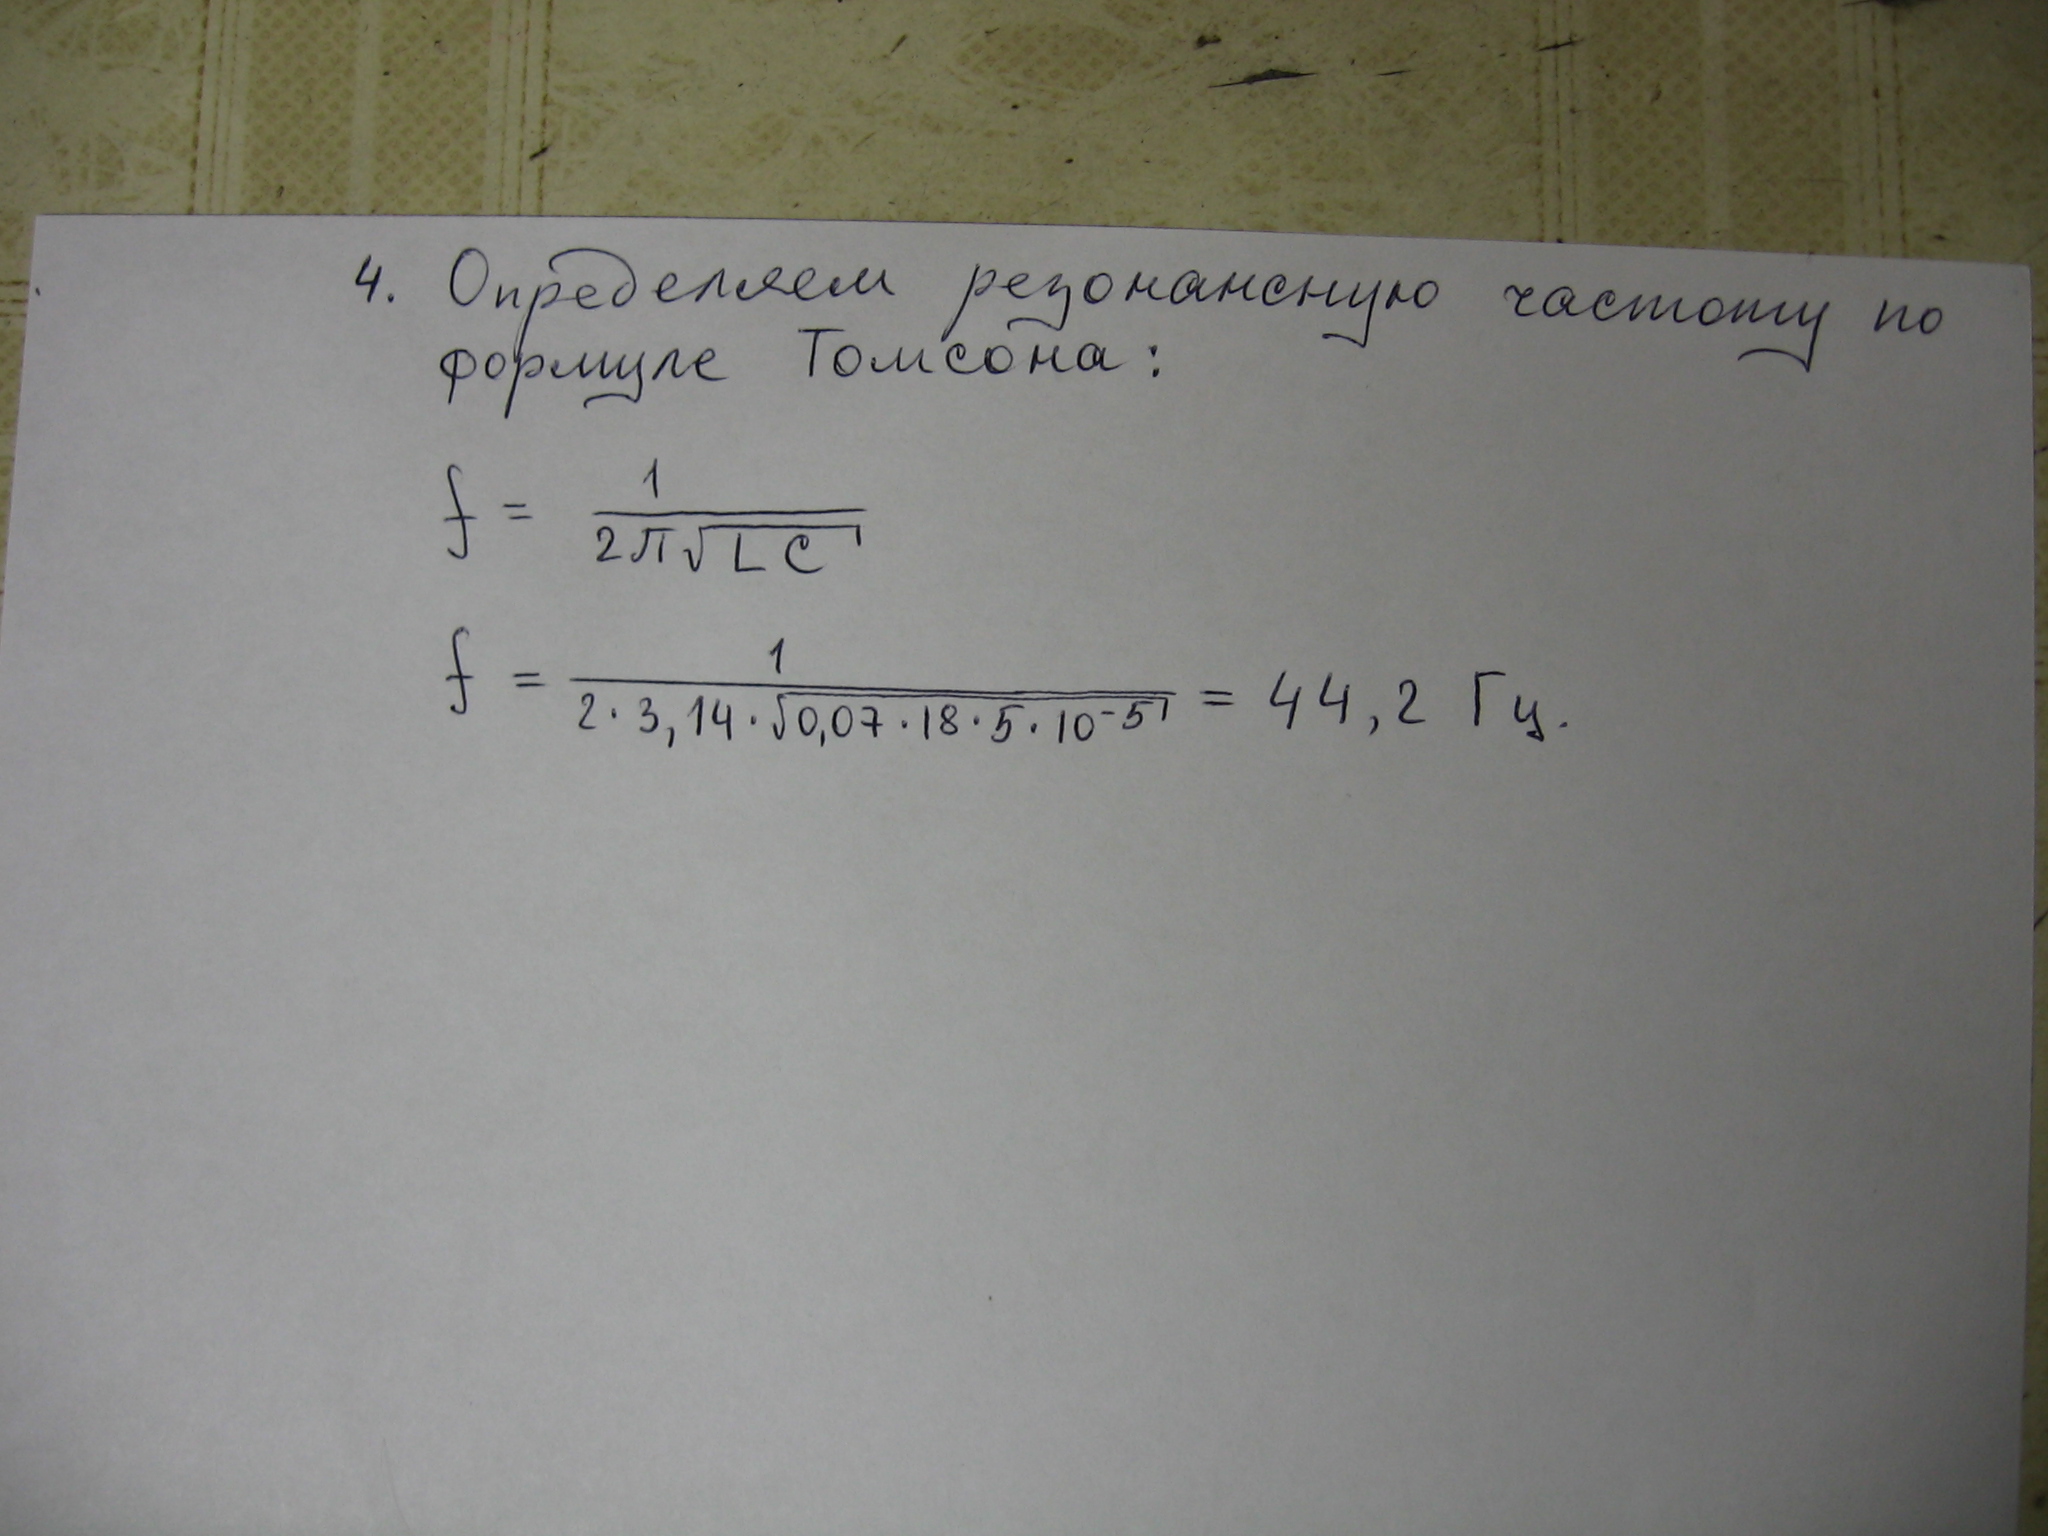 4. Определяем резонансную частоту по
формуле Томсона:
f = 1 / (2π√(LC))
f = 1 / (2·3,14·√(0,07·18·5·10⁻⁵)) = 44,2 Гц.